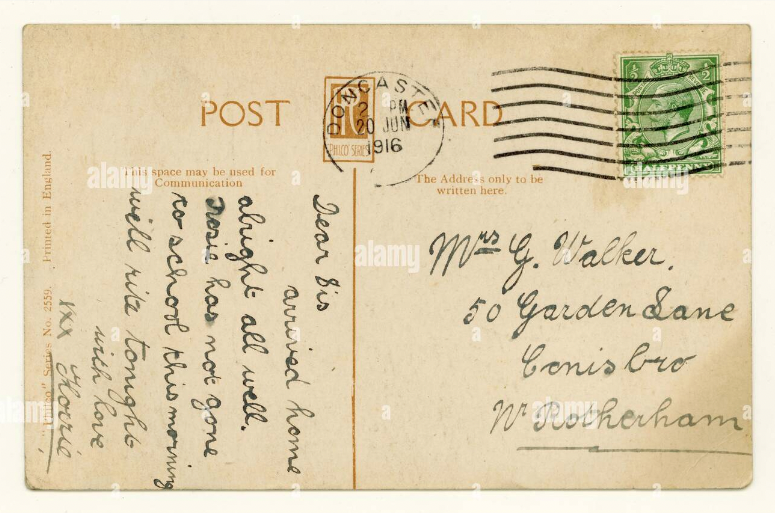 POST CARD
DONCASTER
2 PM
20 JUN
1916
½ ½
This space may be used for
Communication
The Address only to be
written here.
Dear Sis
arrived home
alright all well.
rosie has not gone
to school this morning
will rite tonight
with love
xxx Florrie
Mrs G. Walker.
50 Garden Lane
Conisbro
Nr Rotherham
"Philco" Series No. 2559. Printed in England.
PHILCO SERIES
alamy
alamy
alamy
alamy
alamy
alamy
alamy